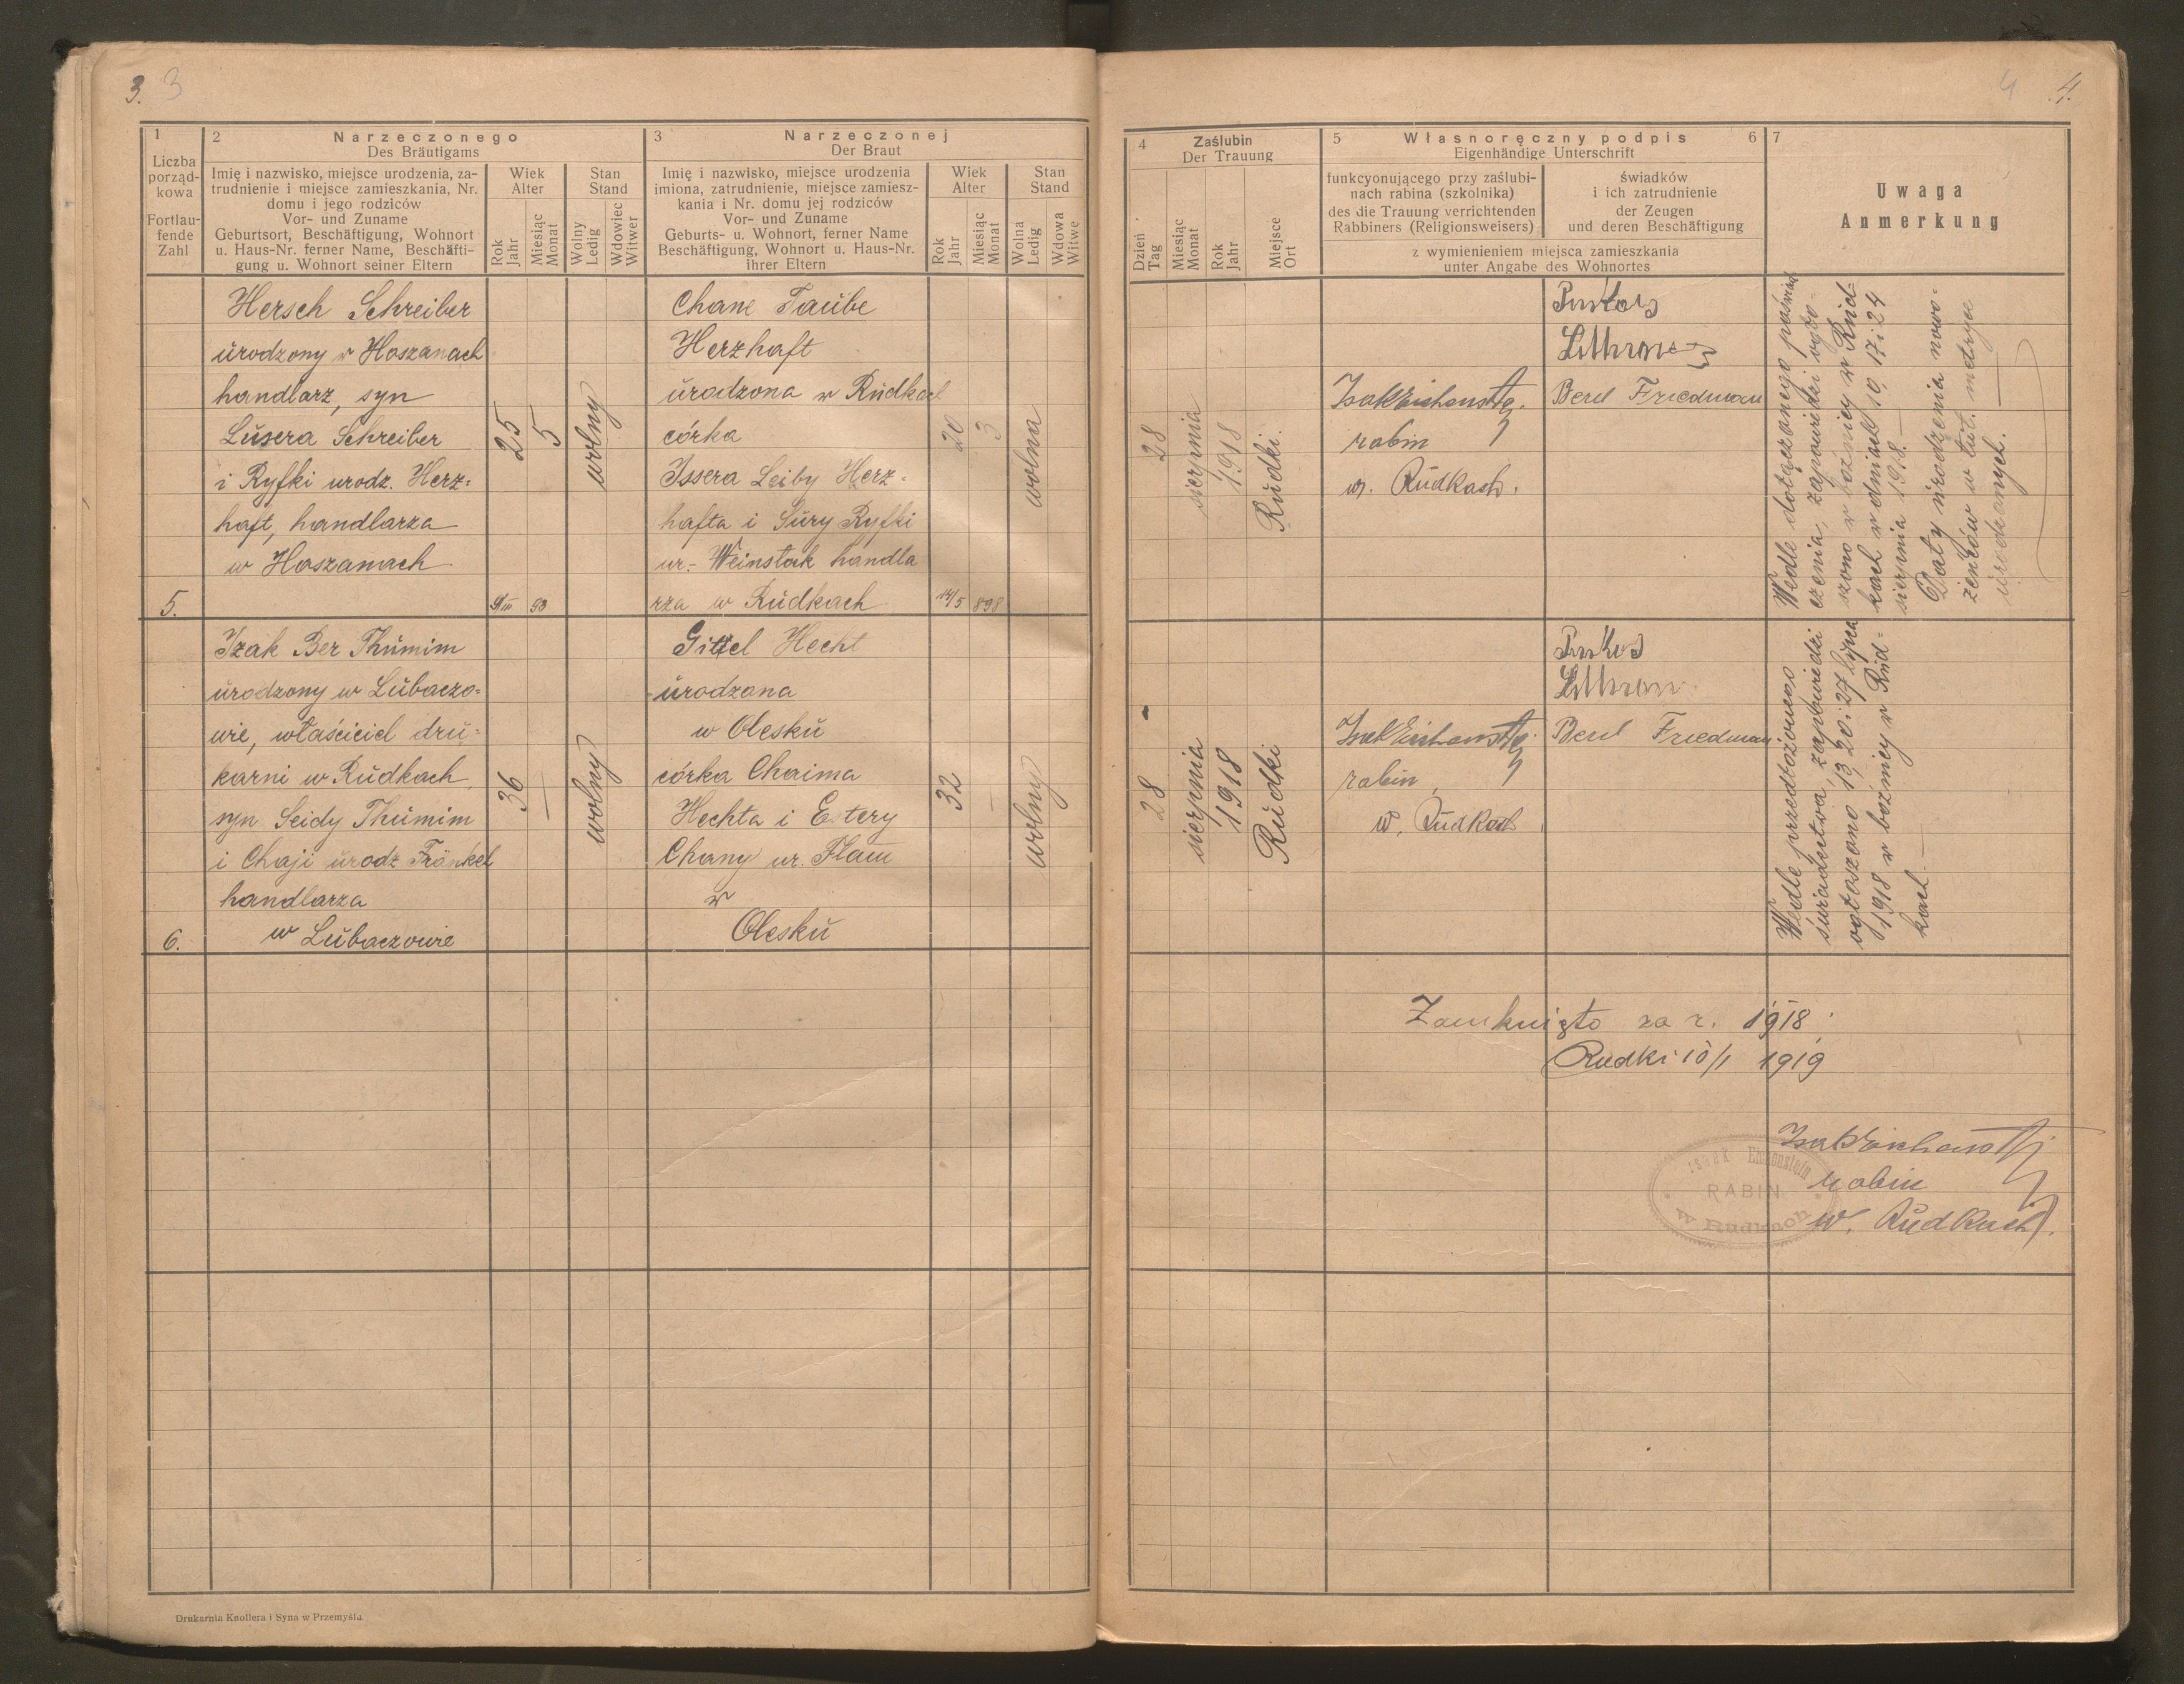 3. 3
1
Liczba
porząd-
kowa
Fortlau-
fende
Zahl
2 Narzeczonego
Des Bräutigams
Imię i nazwisko, miejsce urodzenia, za-
trudnienie i miejsce zamieszkania, Nr.
domu i jego rodziców
Vor- und Zuname
Geburtsort, Beschäftigung, Wohnort
u. Haus-Nr. ferner Name, Beschäfti-
gung u. Wohnort seiner Eltern
Wiek
Alter
Rok
Jahr
Miesiąc
Monat
Stan
Stand
Wolny
Ledig
Wdowiec
Witwer
3 Narzeczonej
Der Braut
Imię i nazwisko, miejsce urodzenia
imiona, zatrudnienie, miejsce zamiesz-
kania i Nr. domu jej rodziców
Vor- und Zuname
Geburts- u. Wohnort, ferner Name
Beschäftigung, Wohnort u. Haus-Nr.
ihrer Eltern
Wiek
Alter
Rok
Jahr
Miesiąc
Monat
Stan
Stand
Wolna
Ledig
Wdowa
Witwe
5.
Hersch Schreiber
urodzony w Hoszanach
handlarz, syn
Lusera Schreiber
i Ryfki urodz. Herz=
haft, handlarza
w Hoszanach
25
5
wolny
9/III 93
Chane Taube
Herzhaft
urodzona w Rudkach
córka
Issera Leiby Herz=
hafta i Sury Ryfki
ur. Weinstok handla
rza w Rudkach
20
3
wolna
14/5 898
6.
Izak Ber Thumim
urodzony w Lubaczo=
wie, właściciel dru=
karni w Rudkach,
syn Seidy Thumim
i Chaji urodz Fränkel
handlarza
w Lubaczowie
36
—
wolny
Gittel Hecht
urodzona
w Olesku
córka Chaima
Hechta i Estery
Chany ur. Flam
w
Olesku
32
—
wolny
Drukarnia Knollera i Syna w Przemyślu.
4 4.
4 Zaślubin
Der Trauung
Dzień
Tag
Miesiąc
Monat
Rok
Jahr
Miejsce
Ort
5 Własnoręczny podpis 6
Eigenhändige Unterschrift
funkcyonującego przy zaślubi-
nach rabina (szkolnika)
des die Trauung verrichtenden
Rabbiners (Religionsweisers)
świadków
i ich zatrudnienie
der Zeugen
und deren Beschäftigung
z wymienieniem miejsca zamieszkania
unter Angabe des Wohnortes
7
Uwaga
Anmerkung
28
sierpnia
1918
Rudki.
rabin
w. Rudkach.
Berl Friedman
Wedle dołączonego poświad
czenia, zapowiedzi ogło-
szono w bożnicy w Rud-
kach w dniach 10, 17 i 24
sierpnia 1918. —
Daty urodzenia nowo-
żeńców w tut. metryce
28
sierpnia
1918
Rudki
rabin
w. Rudkach
Berl Friedman
Wedle przedłożonego
świadectwa, zapowiedzi
ogłoszono 13, 20 i 27 lipca
1918 w bożnicy w Rud-
kach. —
Zamknięto za r. 1918.
Rudki 10/1 1919
rabin
w. Rudkach.
Isaak Eichenstein
RABIN
w Rudkach